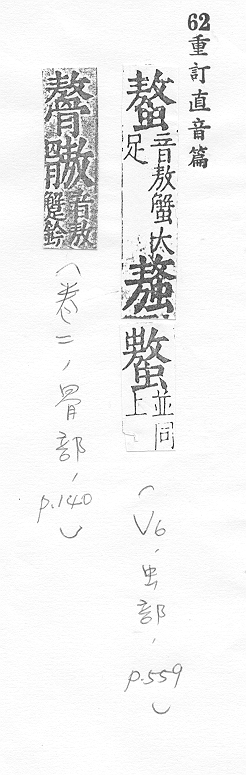 62重訂直音篇
螯音敖蟹大足
並同上
(V6,虫部,p.559)
音敖蟹鈐
(卷二,骨部,p.140)